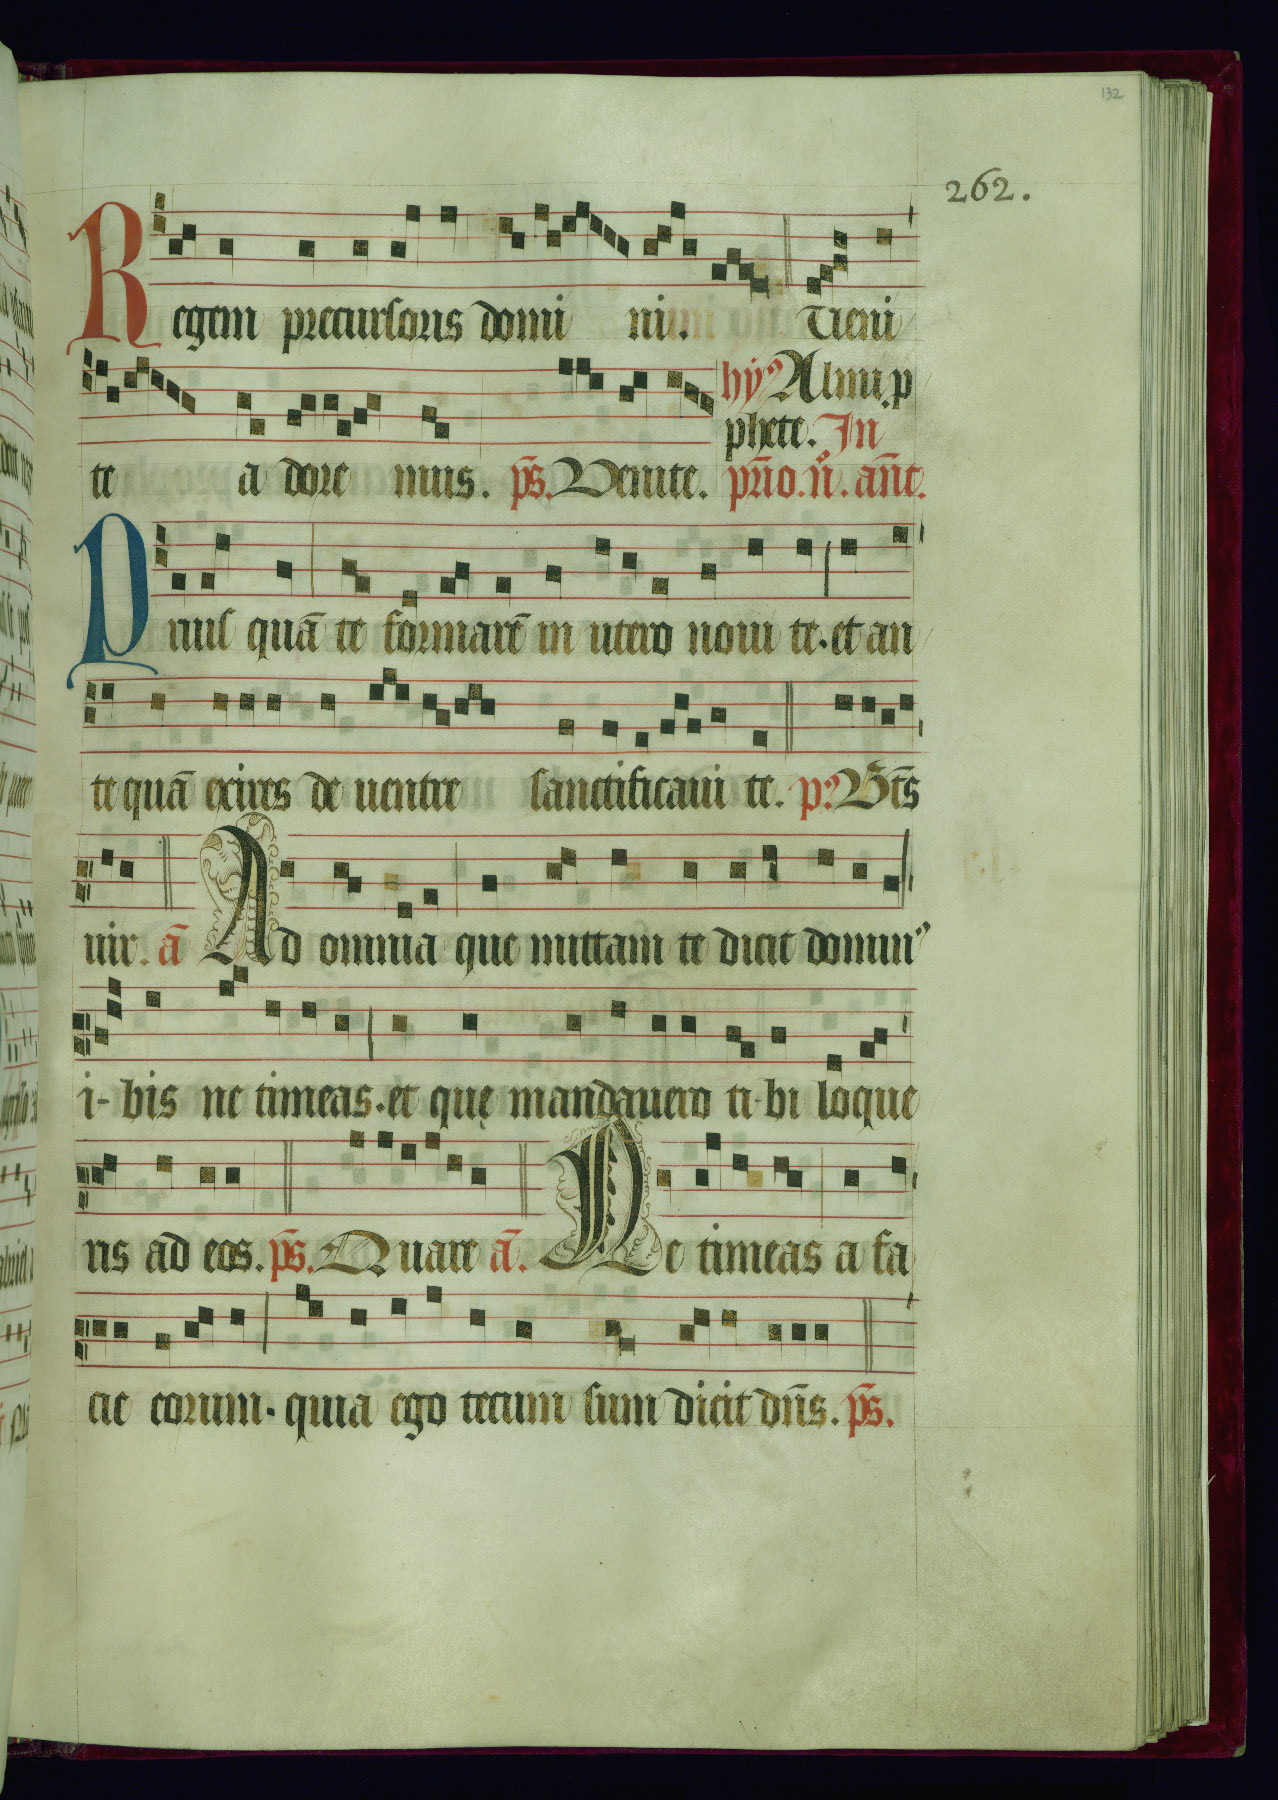 132
262.
Regem precursoris domi ni. Ueni
hỹ Almi p
phete. In
te a dore mus. p̄s. Venite. p̄rio. n̊. an̄t.
Prius quā te formarē in utero noui te. et an
te quā exires de uentre sanctificaui te. p̄s Bt̄s
uir. ā Ad omnia que mittam te dicit dominꝰ
i- bis ne timeas. et quę mandauero ti-bi loque
ris ad eos. p̄s. Quare ā. Ne timeas a fa
cie eorum. quia ego tecum sum dicit dn̄s. p̄s.